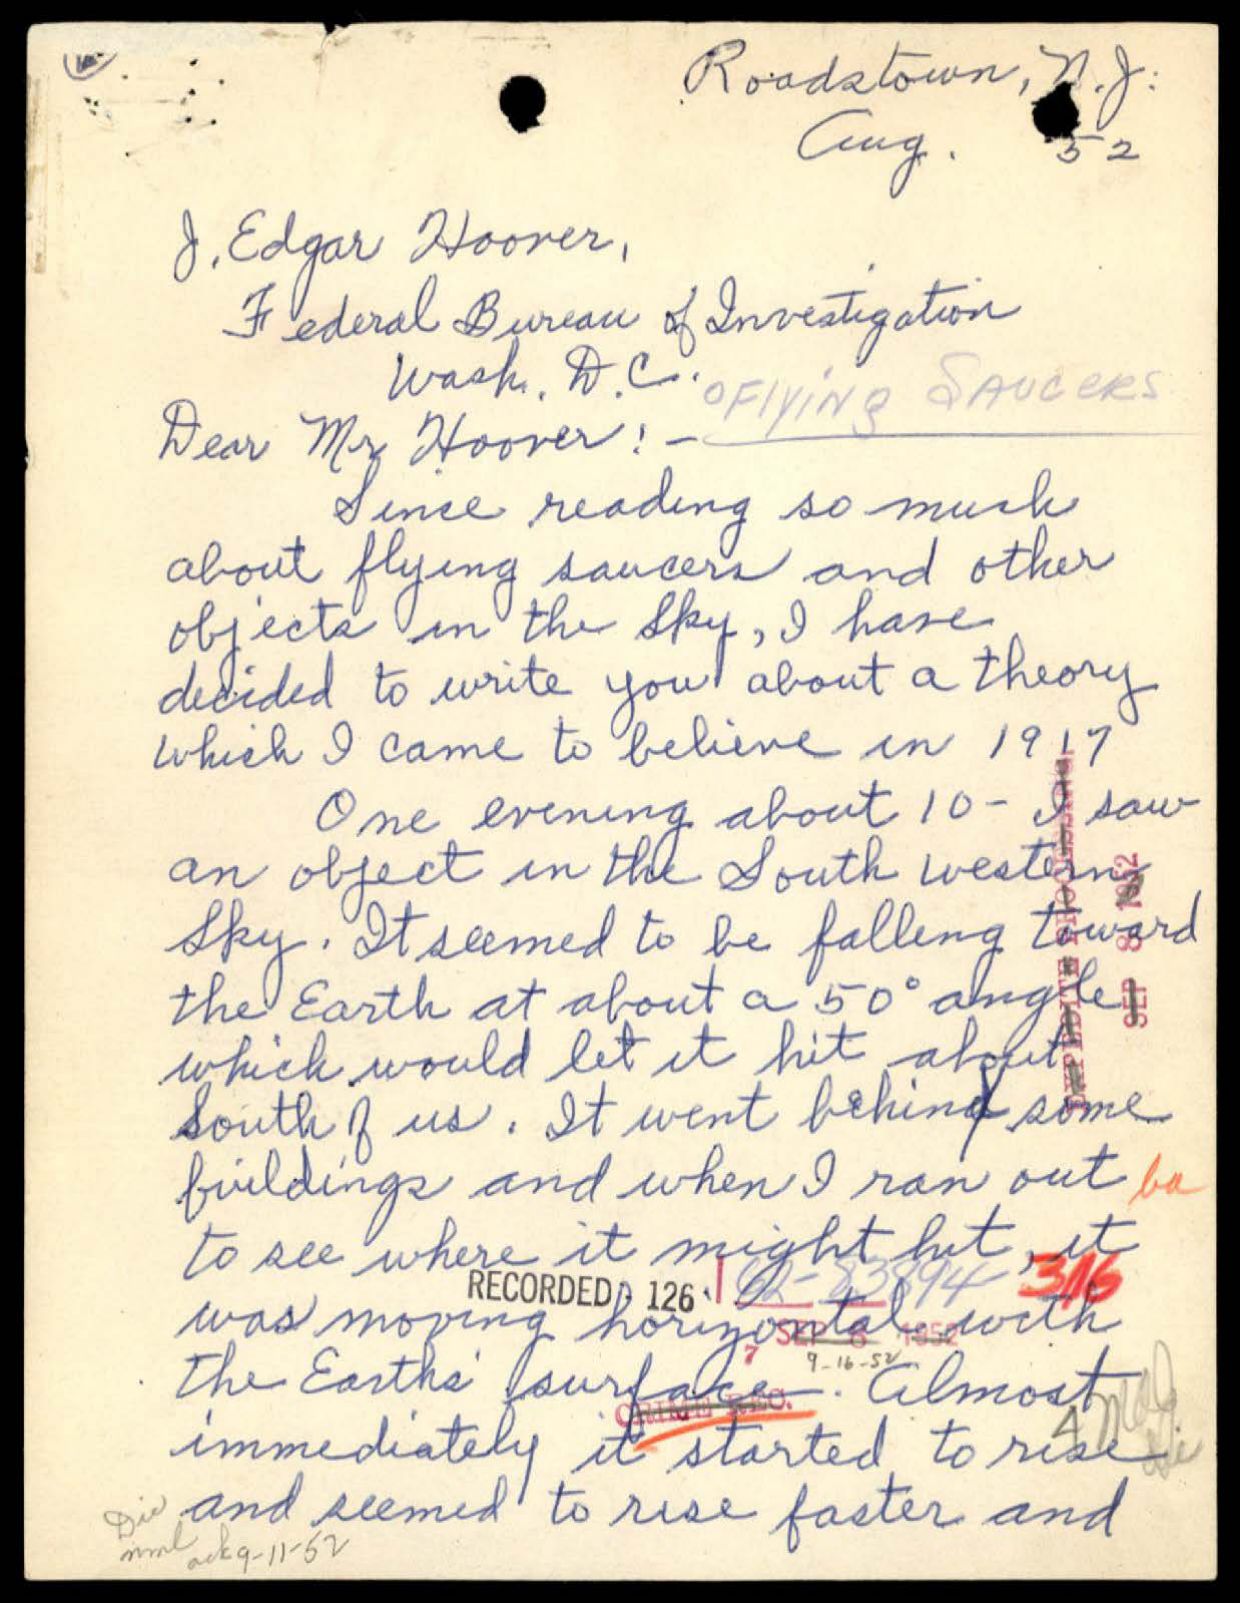 Roadstown, N.J.
Aug. 52
J. Edgar Hoover,
Federal Bureau of Investigation
Wash. D.C.
FlyiNg SAUCERS
Dear Mr Hoover: -
Since reading so much
about flying saucers and other
objects in the Sky, I have
decided to write you about a theory
which I came to believe in 1917
One evening about 10 - I saw
an object in the South western
Sky. It seemed to be falling toward
the Earth at about a 50° angle
which would let it hit about
South of us. It went behind some
buildings and when I ran out
to see where it might hit, it
RECORDED - 126
62-83894-316
was moving horizontal with
7 SEP 8 1952
9-16-52
the Earths' surface. Almost
CRIME REC.
immediately it started to rise
and seemed to rise faster and
ack 9-11-52
EXPEDITE PROCESSING
SEP 8 1952